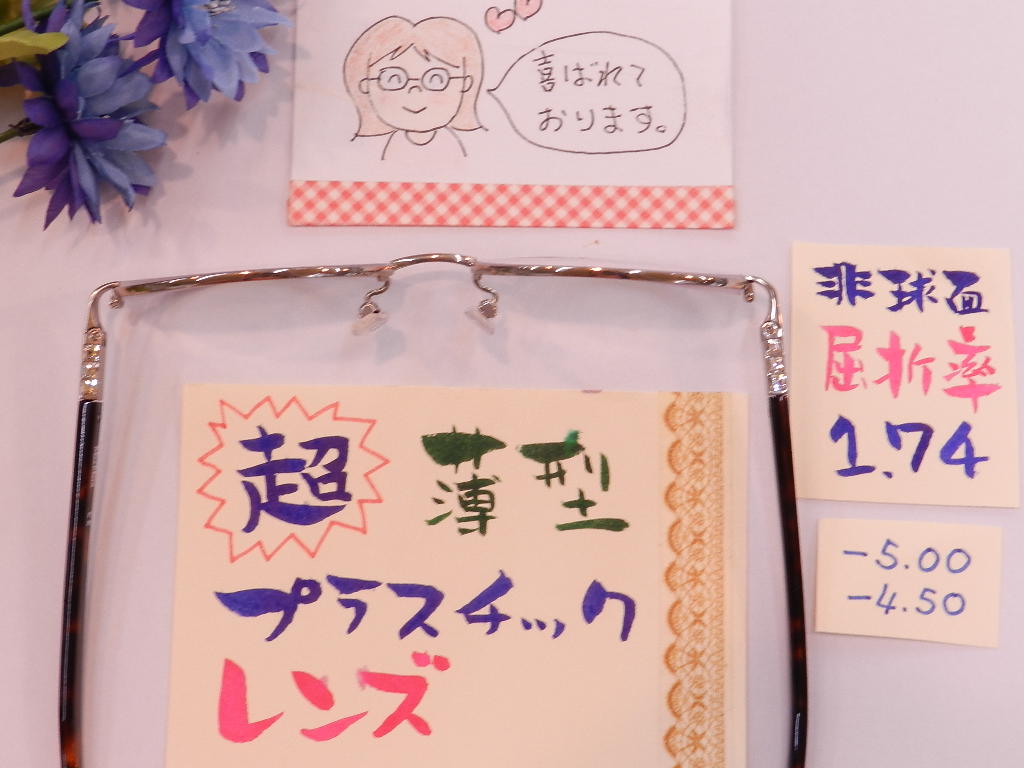 喜ばれて
おります。
非球面
屈折率
1.74
超薄型
プラスチック
レンズ
-5.00
-4.50